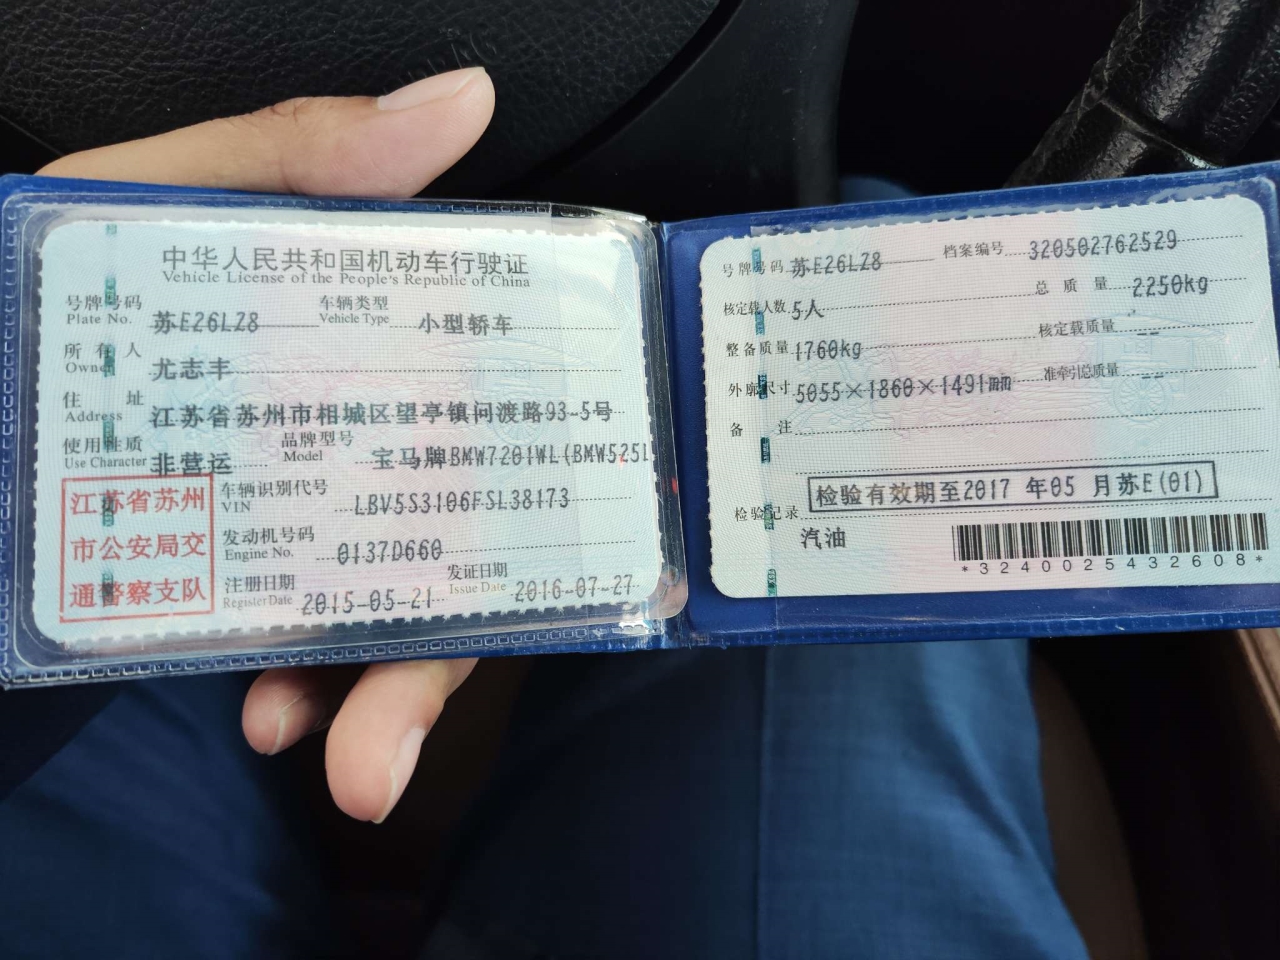 中华人民共和国机动车行驶证
Vehicle License of the People's Republic of China
号牌号码 苏E26LZ8 车辆类型 小型轿车
Plate No. Vehicle Type
所有人 尤志丰
Owner
住址 江苏省苏州市相城区望亭镇问渡路93-5号
Address
使用性质 非营运 品牌型号 宝马牌BMW7201WL(BMW525L
Use Character Model
江苏省苏州
市公安局交
通警察支队
车辆识别代号 LBV5S3106FSL38173
VIN
发动机号码 0137D660
Engine No.
注册日期 2015-05-21 发证日期 2016-07-27
Register Date Issue Date
号牌号码 苏E26LZ8 档案编号 320502762529
核定载人数 5人 总质量 2250kg
整备质量 1760kg 核定载质量 --
外廓尺寸 5055×1860×1491mm 准牵引总质量 --
备注
检验有效期至2017 年05 月苏E(01)
检验记录
汽油
*3240025432608*